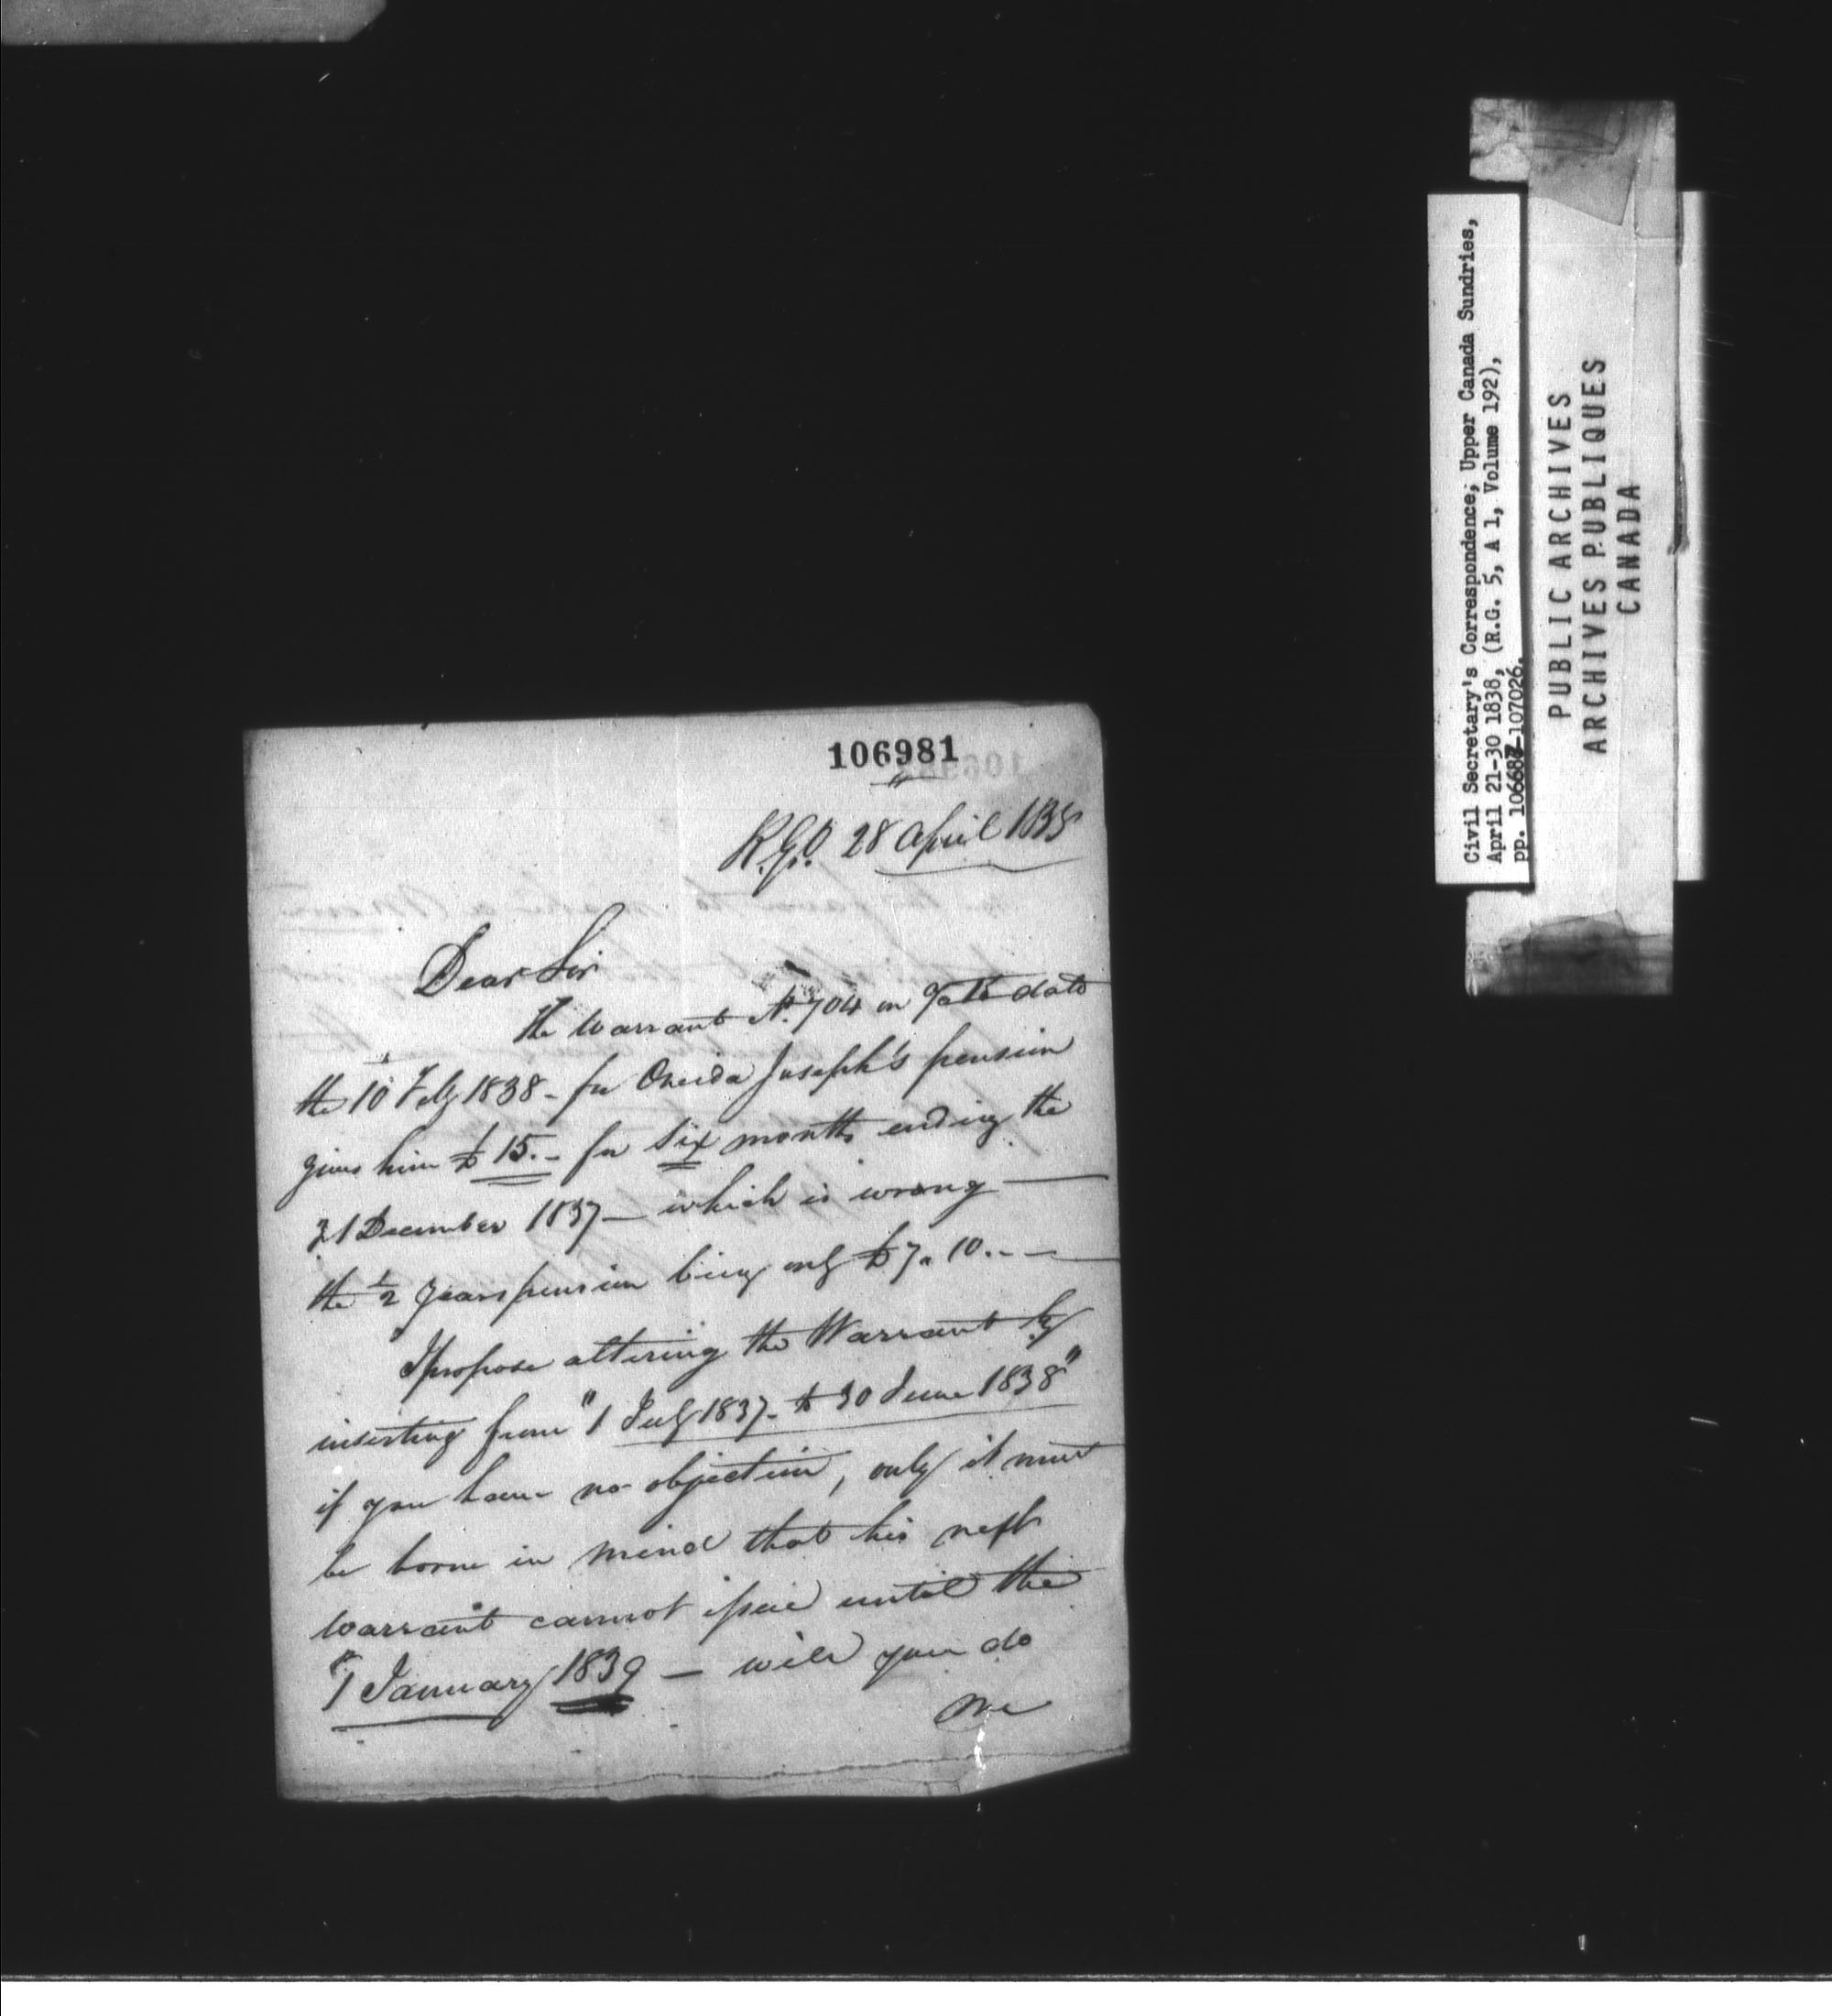 106981
R.G.O. 28 April 1838
Dear Sir
The Warrant No. 704 on date
the 10 Feby 1838 - for Oneida Joseph's pension
gives him £15. - for six months ending the
31 December 1837 - which is wrong —
the 1/2 years pension being only £7. 10. - —
I propose altering the Warrant by
inserting from "1 July 1837 - to 30 June 1838"
if you have no objection, only it must
be borne in mind that his next
warrant cannot issue until the
"1 January 1839 — will you do
me
Civil Secretary's Correspondence; Upper Canada Sundries,
April 21-30 1838, (R.G. 5, A 1, Volume 192),
pp. 106687-107026.
PUBLIC ARCHIVES
ARCHIVES PUBLIQUES
CANADA